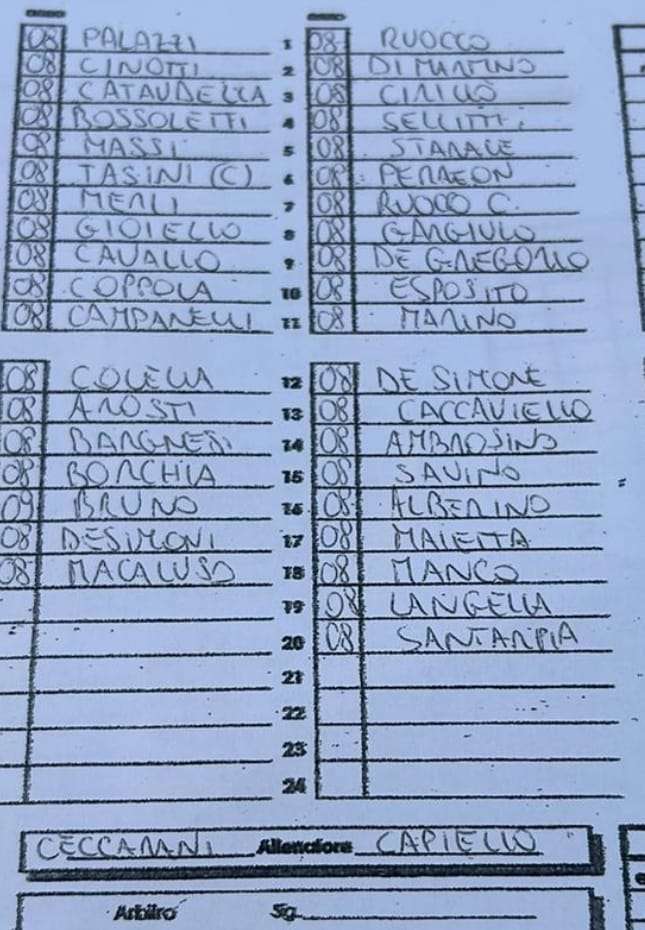 ANNO ANNO
08 PALAZZI 1 08 RUOCCO
08 CINOTTI 2 08 DI MARTINO
08 CATAUDELLA 3 08 CIRILLO
08 BOSSOLETTI 4 08 SELLITTI
08 MASSI 5 08 STARACE
08 TASINI (C) 6 08 PERREON
08 MERLI 7 08 RUOCO C.
08 GIOIELLO 8 08 GARGIULO
08 CAVALLO 9 08 DE GREGORIO
08 COPPOLA 10 08 ESPOSITO
08 CAMPANELLI 11 08 MARINO
08 COLELLA 12 08 DE SIMONE
08 AROSTI 13 08 CACCAVIELLO
08 BARGNESI 14 08 AMBROSINO
08 BORCHIA 15 08 SAVINO
09 BRUNO 16 08 ALBERINO
08 DESIMONI 17 08 MAIETTA
08 MACALUSO 18 08 MANCO
19 08 LANGELLA
20 08 SANTARPIA
21
22
23
24
CECCARANI Allenatore CAPIELLO
Arbitro Sg.